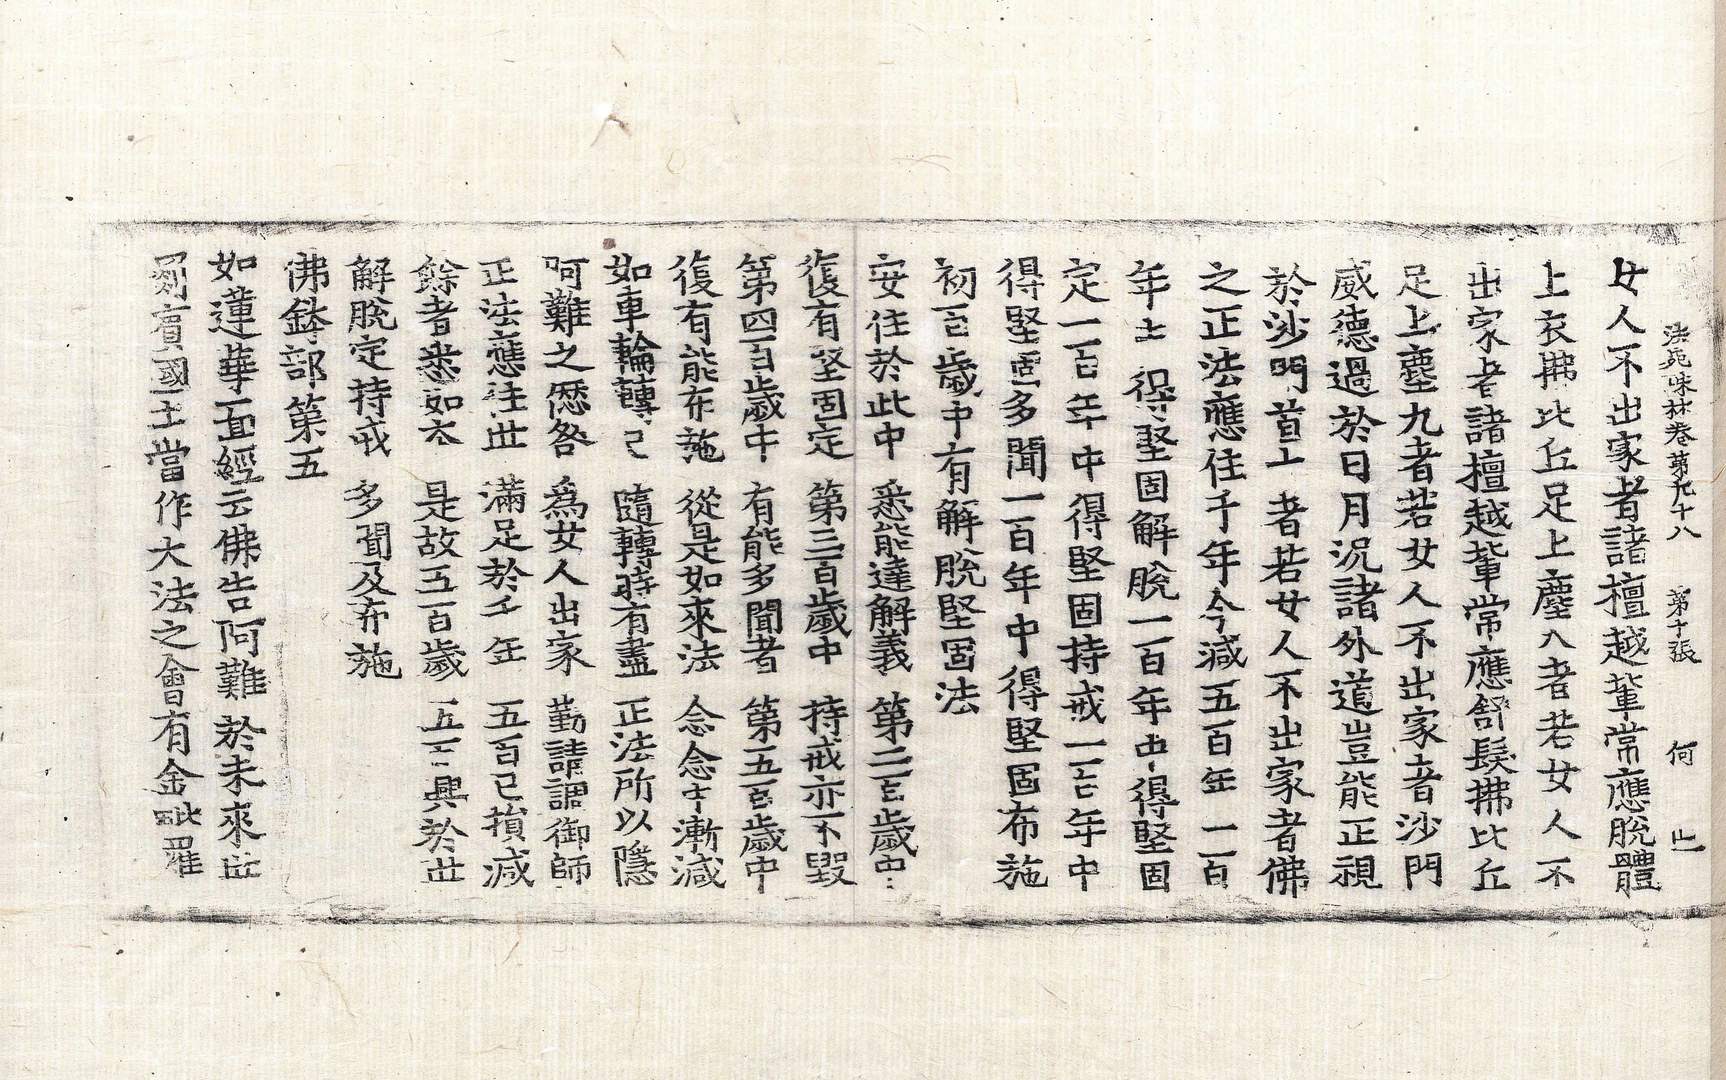 法苑珠林卷第九十八　第十張　何
女人不出家者諸檀越輩常應脫體
上衣拂比丘足上塵八者若女人不
出家者諸檀越輩常應舒髮拂比丘
足上塵九者若女人不出家者沙門
威德過於日月況諸外道豈能正視
於沙門首上　者若女人不出家者佛
之正法應住千年今減五百年　一百
年　得堅固解脫一百年中得堅固
定一百年中得堅固持戒一百年中
得堅固多聞一百年中得堅固布施
初百歲中有解脫堅固法
安住於此中　悉能達解義　第二百歲中
復有堅固定　第三百歲中　持戒亦不毀
第四百歲中　有能多聞者　第五百歲中
復有能布施　從是如來法　念念中漸減
如車輪轉已　隨轉時有盡　正法所以隱
阿難之愆咎　為女人出家　勤請調御師
正法應住世　滿足於千年　五百已損減
餘者悉如本　是故五百歲　五　興於世
解脫定持戒　多聞及布施
佛鉢部第五
如蓮華面經云佛告阿難於未來世
罽賓國土當作大法之會有金毗羅